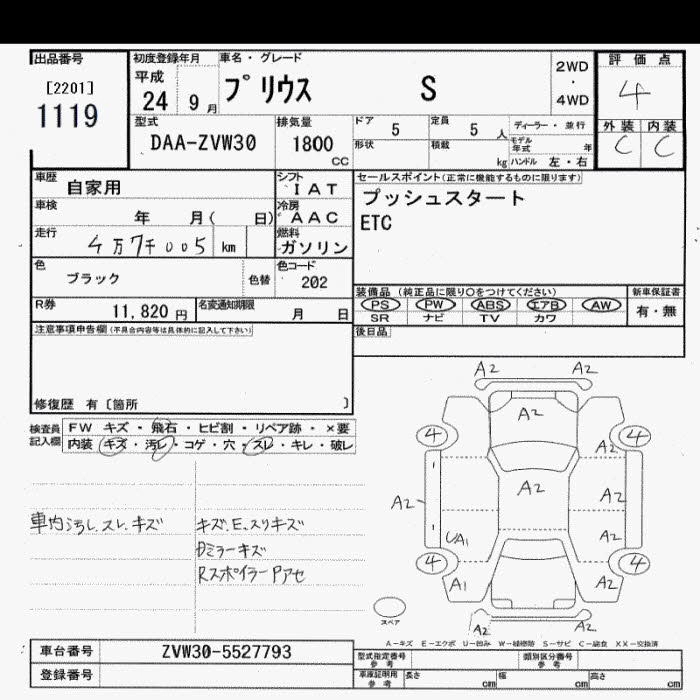 出品番号 初度登録年月 車名・グレード 評価点
[2201] 平成 2WD
1119 24 9月 プリウス S ・ 4
4WD
型式 排気量 ドア 定員 ディーラー・並行 外装 内装
DAA-ZVW30 1800 CC 5 5人 モデル年式 年 C C
形状 積載 kg ハンドル 左・右
車歴 自家用 シフト IAT セールスポイント(正常に機能するものに限ります)
車検 年 月( 日) 冷房 AAC プッシュスタート
走行 4万7千005 km 燃料 ガソリン ETC
色 ブラック 色替 色コード 202
装備品(純正品に限り○をつけてください) 新車保証書
R券 11,820円 名変通知期限 月 日 PS PW ABS エアB AW 有・無
SR ナビ TV カワ
注意事項申告欄(不具合内容等は具体的に記入して下さい) 後日品
修復歴 有 〔箇所 〕
検査員記入欄 FW キズ・飛石・ヒビ割・リペア跡・×要
内装 キズ・汚レ・コゲ・穴・スレ・キレ・破レ
A2 A2
A2
4 4
A2
A2 A2 A2
UA1 A2
4 4
A1 A2
A2 A2
車内汚レ.スレ.キズ キズ.E.スリキズ
Dミラーキズ
RスポイラーPアセ
スペア
A-キズ E-エクボ U-凹み W-補修跡 S-サビ C-腐食 XX-交換済
車台番号 ZVW30-5527793 型式指定番号 参考 類別区分番号 参考
登録番号 車庫証明用 参考 長さ cm 幅 cm 高さ cm